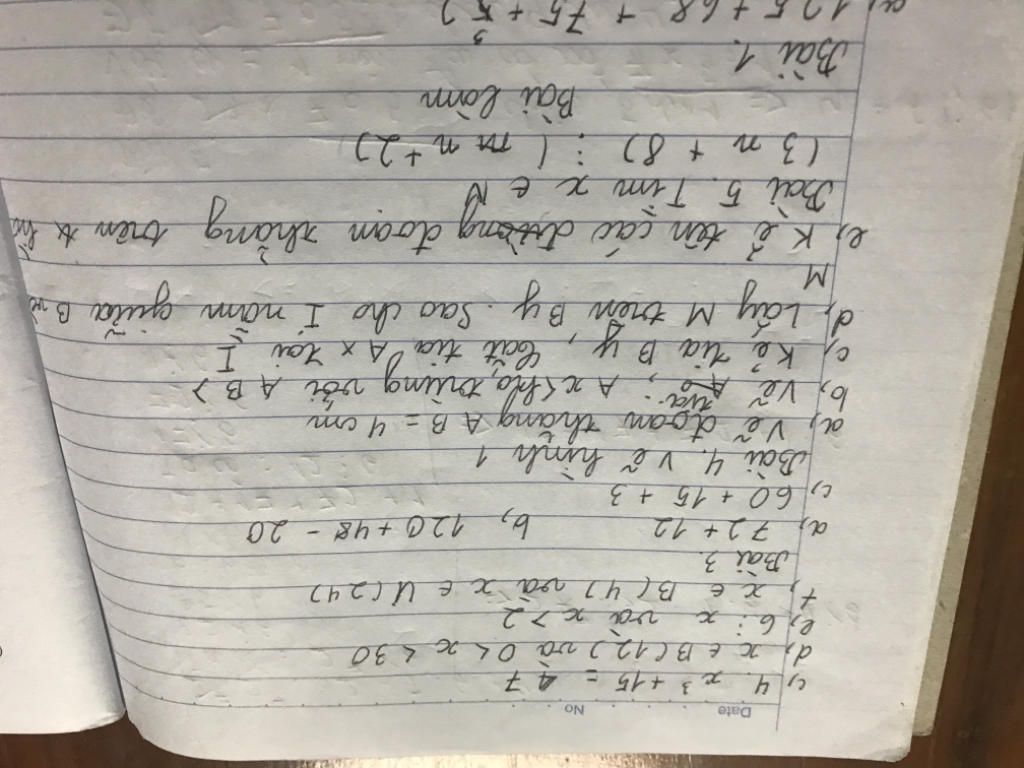 Date No
c, 4. x³ + 15 = 47
d, x ∈ B(12) và 0 < x < 30
e, 6 ⋮ x và x > 2
f, x ∈ B(4) và x ∈ Ư(24)
Bài 3.
a, 72 + 12 b, 120 + 48 - 20
c, 60 + 15 + 3
Bài 4. Vẽ hình 1
a, Vẽ đoạn thẳng AB = 4cm
b, Vẽ tia Ax (ko trùng với AB)
c, Kẻ tia By, cắt tia Ax tại I
d, Lấy M trên By. Sao cho I nằm giữa B và
M
e, Kể tên các đoạn thẳng trên
Bài 5. Tìm x ∈ N
(3n + 8) ⋮ (n + 2)
Bài làm
Bài 1.
a, 125 + 68 + 75 + 5³